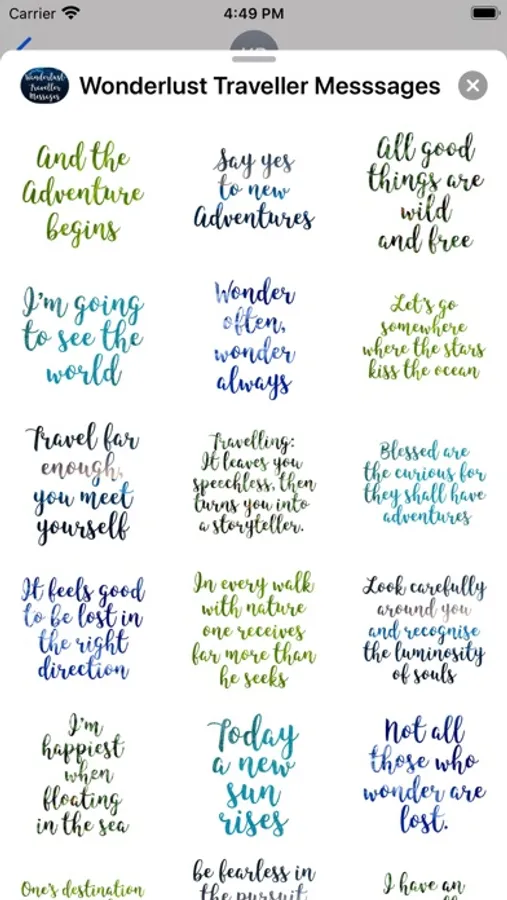 Carrier 4:49 PM
Wonderlust Traveller Messages
Wonderlust Traveller Messsages
And the
Adventure
begins
Say yes
to new
Adventures
All good
things are
wild
and free
I'm going
to see the
world
Wonder
often,
wonder
always
Let's go
somewhere
where the stars
kiss the ocean
Travel far
enough,
you meet
yourself
Travelling:
It leaves you
speechless, then
turns you into
a storyteller.
Blessed are
the curious for
they shall have
adventures
It feels good
to be lost in
the right
direction
In every walk
with nature
one receives
far more than
he seeks
Look carefully
around you
and recognise
the luminosity
of souls
I'm
happiest
when
floating
in the sea
Today
a new
sun
rises
Not all
those who
wonder are
lost.
One's destination
be fearless in
the pursuit
I have an